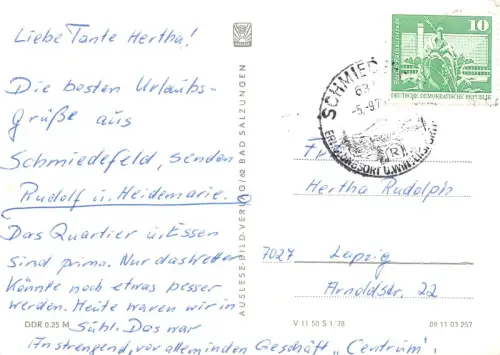 Liebe Tante Hertha!
Die besten Urlaubs-
grüße aus
Schmiedefeld, senden
Rudolf u. Heidemarie.
Das Quartier u. Essen
sind prima. Nur das Wetter
könnte noch etwas besser
werden. Heute waren wir in
Suhl. Das war
Anstrengend, vor allem in den Geschäft „Centrum".
DDR 0.25 M
AUSLESE-BILD-VERLAG BAD SALZUNGEN
10
DEUTSCHE DEMOKRATISCHE REPUBLIK
SCHMIED
ERHOLUNGSORT U. WINTERSPORT
Hertha Rudolph
7027 Leipzig
Arnoldstr. 22
V 11 50 S 1/78
09 11 03 257